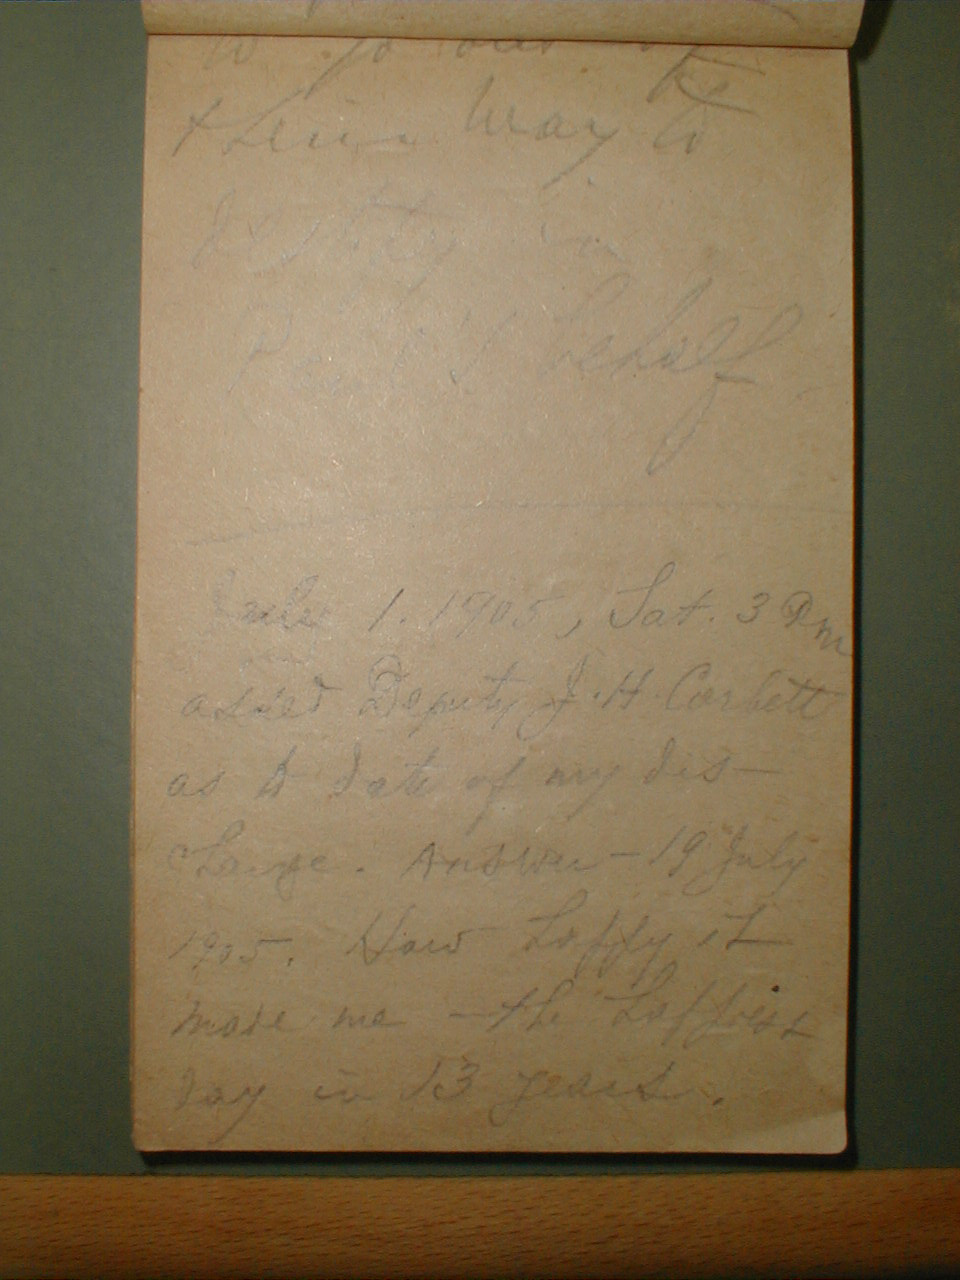 their way to
testify in
Paul's behalf
July 1. 1905, Sat. 3 Pm
asked Deputy J. H. Corbett
as to date of my dis-
charge. Answer - 19 July
1905. How happy it
made me - the happiest
day in 13 years.